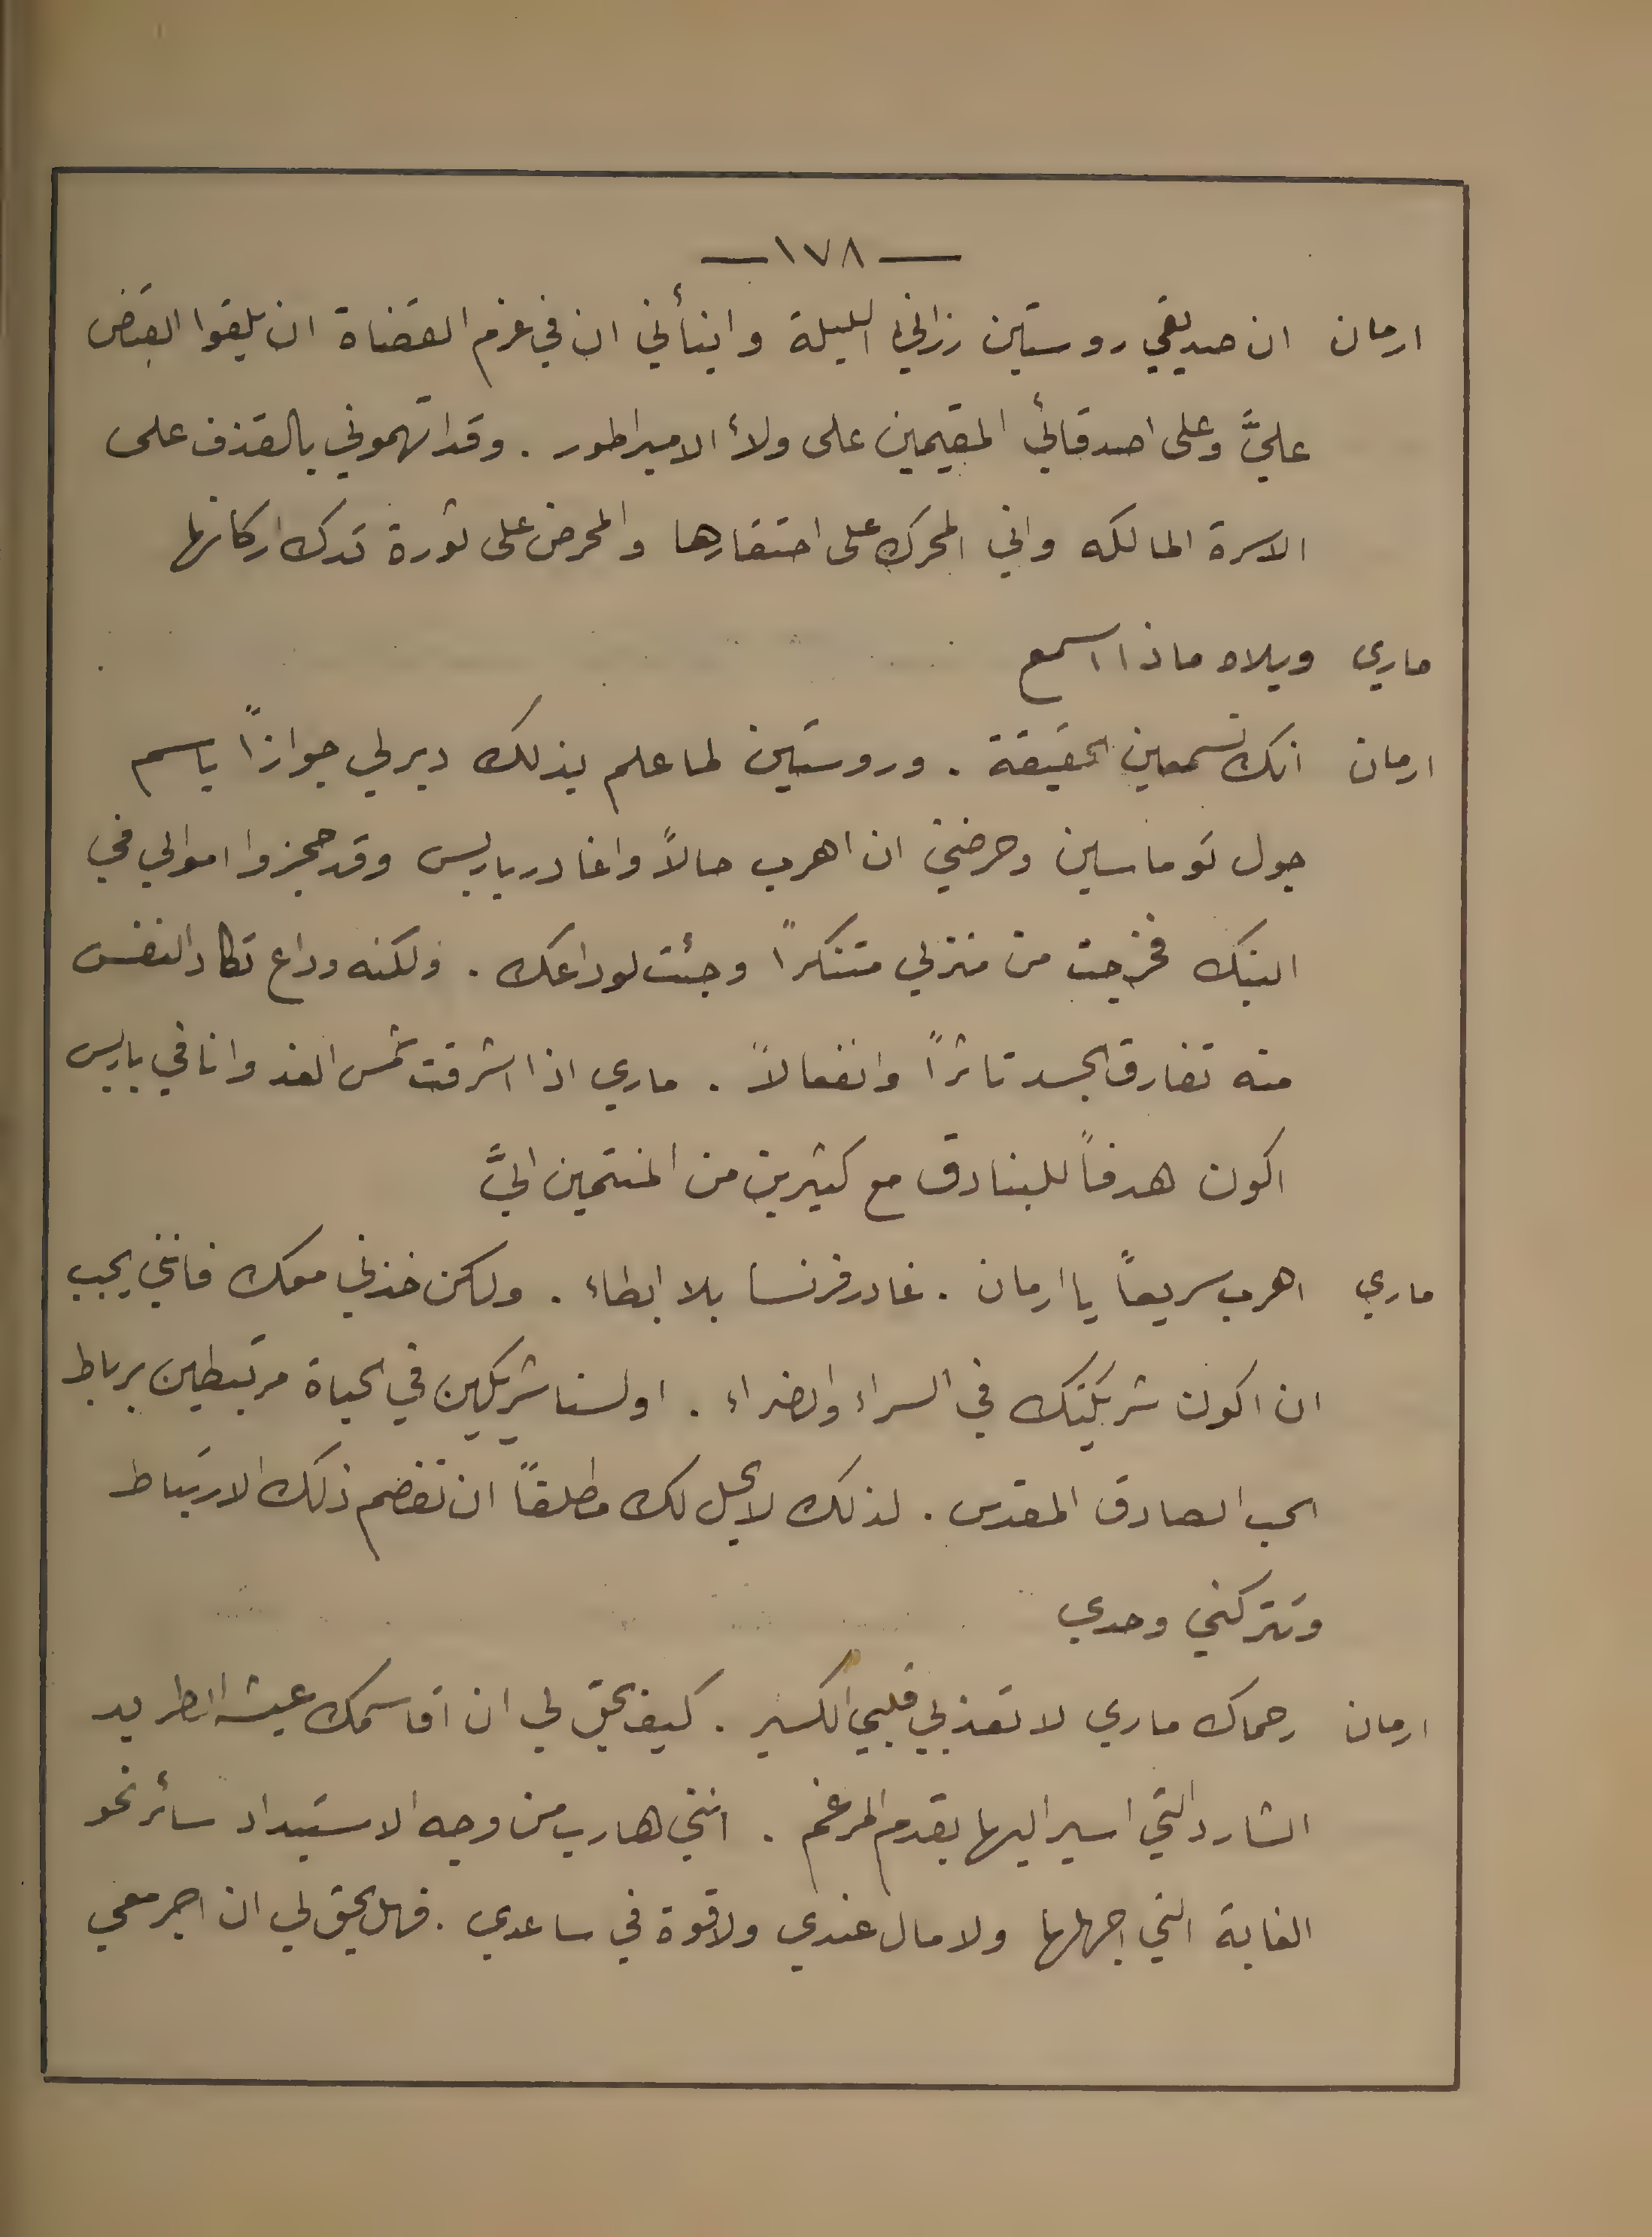 —١٧٨—
ارمان ان صديقي روستين زراني الليلة وابنأني ان في عزم القضاة ان يلقوا القبض
عليَّ وعلى اصدقائي المقيمين على ولاء الامبراطور . وقد اتهموني بالقذف على
الاسرة المالكه واني المحرك على احتقارها والمحرض على ثورة تدك اركانها
ماري ويلاه ماذا اسمع
ارمان انك تسمعين الحقيقة . وروستين لما علم بذلك دبر لي جوازاً باسم
جول توماسين وحرضني ان اهرب حالاً واغادر باريس وقد حجزوا اموالي في
البنك فخرجت من منزلي متنكراً وجئت لوداعك . ولكنه وداع تكاد النفس
منه تفارق الجسد تاثراً وانفعالاً . ماري اذا اشرقت شمس الغد وانا في باريس
اكون هدفاً للبنادق مع كثيرين من المنتمين اليَّ
ماري اهرب سريعاً يا ارمان . غادر فرنسا بلا ابطاء . ولكن خذني معك فانني يجب
ان اكون شريكتك في السراء والضراء . اولسنا شريكين في الحياة مرتبطين برباط
الحب الصادق المقدس . لذلك لا يحل لك مطلقاً ان تفصم ذلك الارتباط
وتتركني وحدي
ارمان رحماك ماري لا تعذبي قلبي الكسير . كيف يحق لي ان اقاسمك عيشة الطريد
الشارد التي اسير اليها بقدم المرغم . انني هارب من وجه الاستبداد سائر نحو
الغابة التي اجهلها ولا مال عندي ولا قوة في ساعدي . فهل يحق لي ان اجر معي